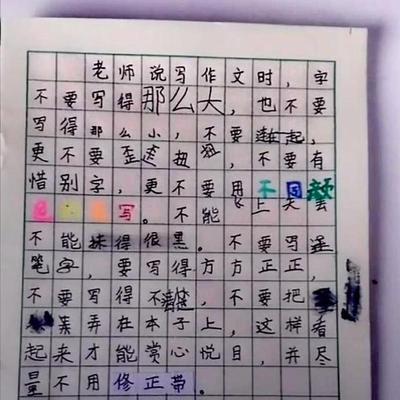 老师说写作文时，字
不要写得那么大，也不要
写得那么小，不要连起，
更不要歪歪扭扭，不要有
惜别字，更不要用不同颜
色 写。不能上天
不能抹得很黑。不要写连
笔字，要写得方方正正，
不要写得不清楚，不要把
弄在本子上，这样看
起来才能赏心悦目，并尽
量不用修正带。